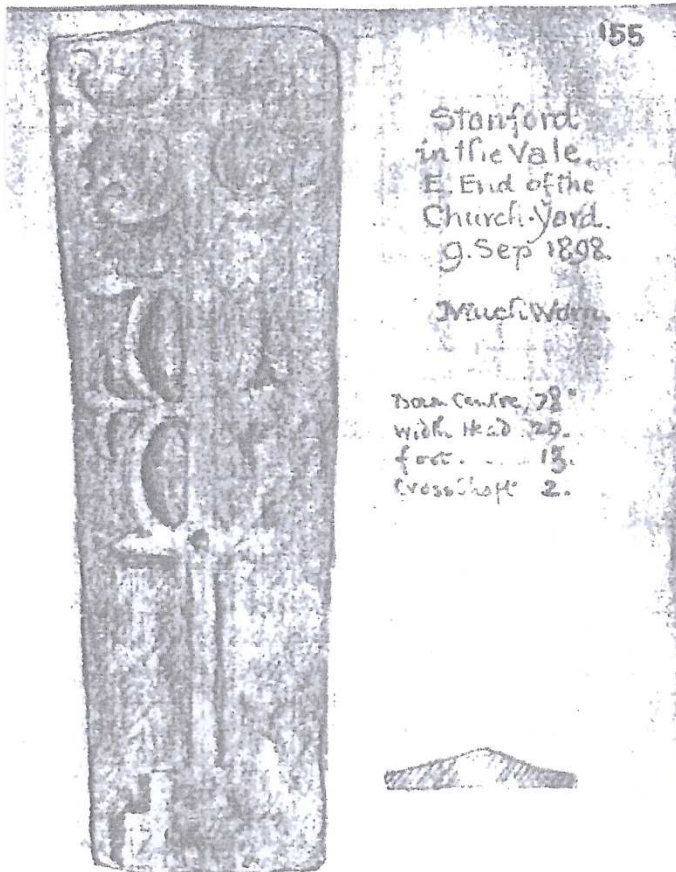 155
Stanford
in the Vale.
E. End of the
Church-Yard.
9. Sep 1898.
Much Worn.
Down Centre, 78"
width Head 25.
foot. . . . 15.
Cross Shaft 2.